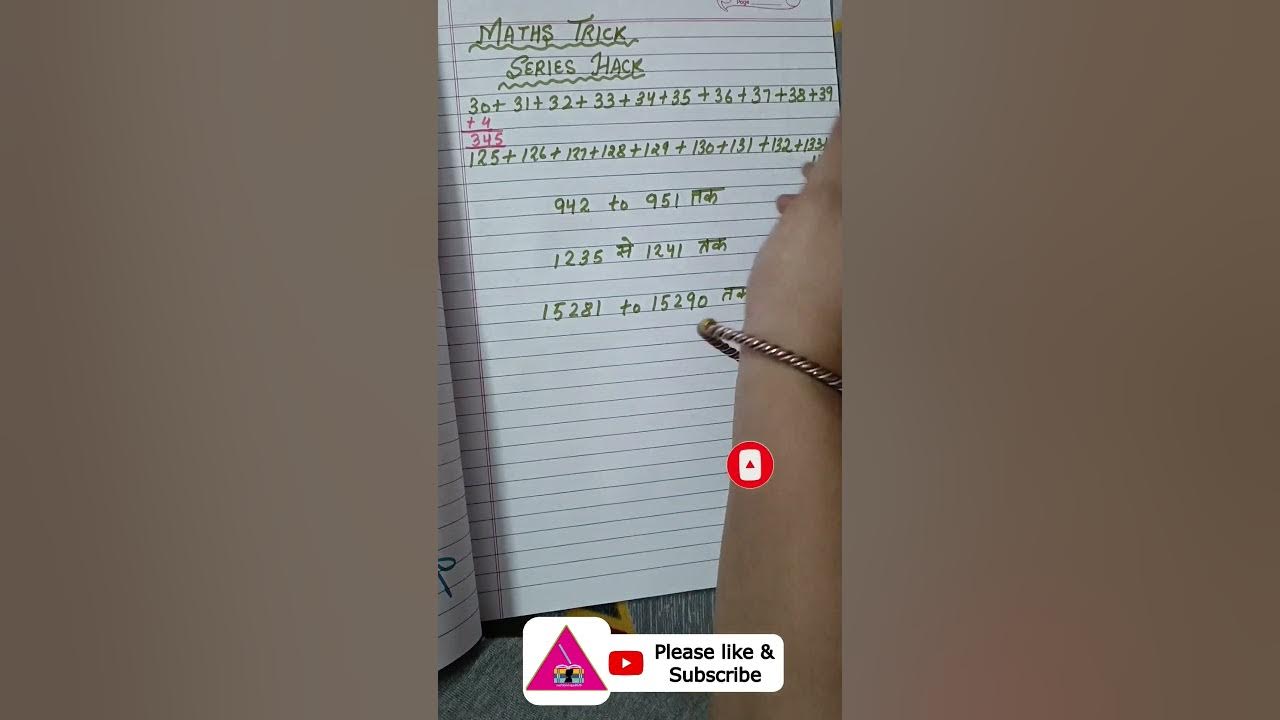 Page
MATHS TRICK
SERIES HACK
30+ 31+ 32+ 33+ 34+35 +36+37+38+39
+4
345
125+ 126+ 127+128+129 + 130+131 +132+133+
942 to 951 तक
1235 से 1241 तक
15281 to 15290 तक
Please like &
Subscribe